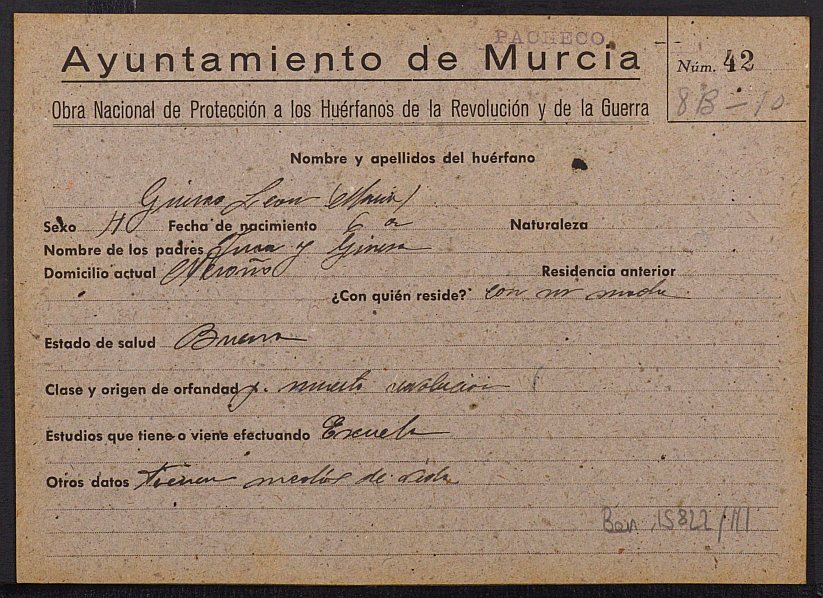 PACHECO
Ayuntamiento de Murcia
Núm. 42
8B-10
Obra Nacional de Protección a los Huérfanos de la Revolución y de la Guerra
Nombre y apellidos del huérfano
Leon (Maria)
Sexo H Fecha de nacimiento 6 a Naturaleza
Nombre de los padres Juan y Ginesa
Domicilio actual Residencia anterior
¿Con quién reside? con su madre
Estado de salud Buena
Clase y origen de orfandad p. muerto revolucion
Estudios que tiene o viene efectuando Escuela
Otros datos tienen medios de vida
Ben 15822/111